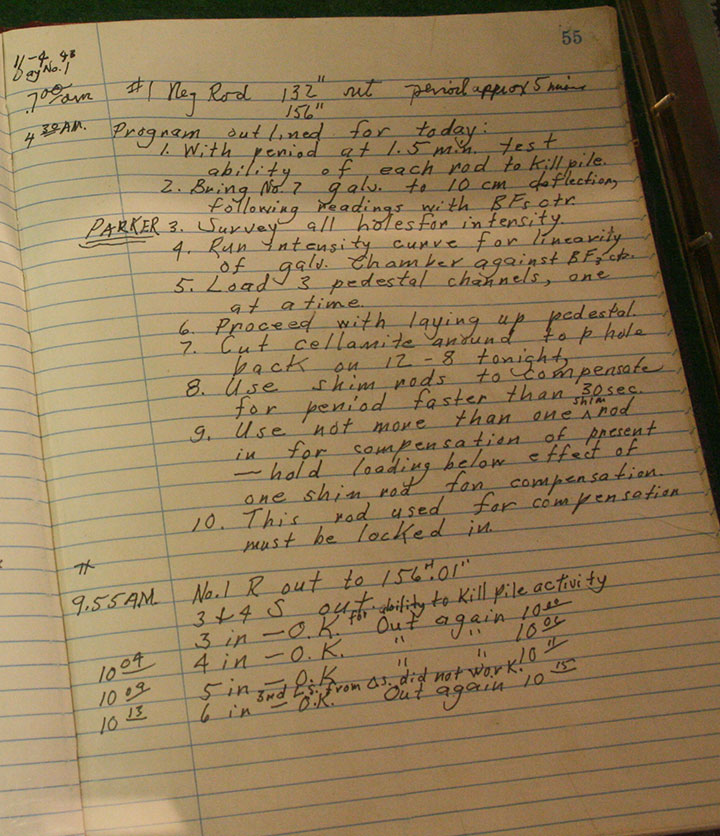 55
11-4 43
Day No. 1
7 00/am #1 Neg Rod 132" period approx 5 min
156"
4 30 AM. Program outlined for today:
1. With period at 1.5 min. test
ability of each rod to kill pile.
2. Bring No. 7 galv. to 10 cm deflection,
following readings with BF3 ctr
PARKER 3. Survey all holes for intensity.
4. Run Intensity curve for linearity
of galv. Chamber against BF3 ctr.
5. Load 3 pedestal channels, one
at a time.
6. Proceed with laying up pedestal.
7. Cut cellamite around top hole
back on 12-8 tonight,
8. Use shim rods to compensate
for period faster than 30 sec.
9. Use not more than one shim rod
in for compensation of present
— hold loading below effect of
one shim rod for compensation.
10. This rod used for compensation
must be locked in.
9.55 AM No. 1 R out to 156".01"
3 & 4 S out for ability to kill pile activity
3 in - O.K. Out again 10 00
10 04 4 in - O.K. " " 10 06
10 09 5 in - O.K. " " 10 11
3rd L.S. from did not work.
10 13 6 in - O.K. Out again 10 15